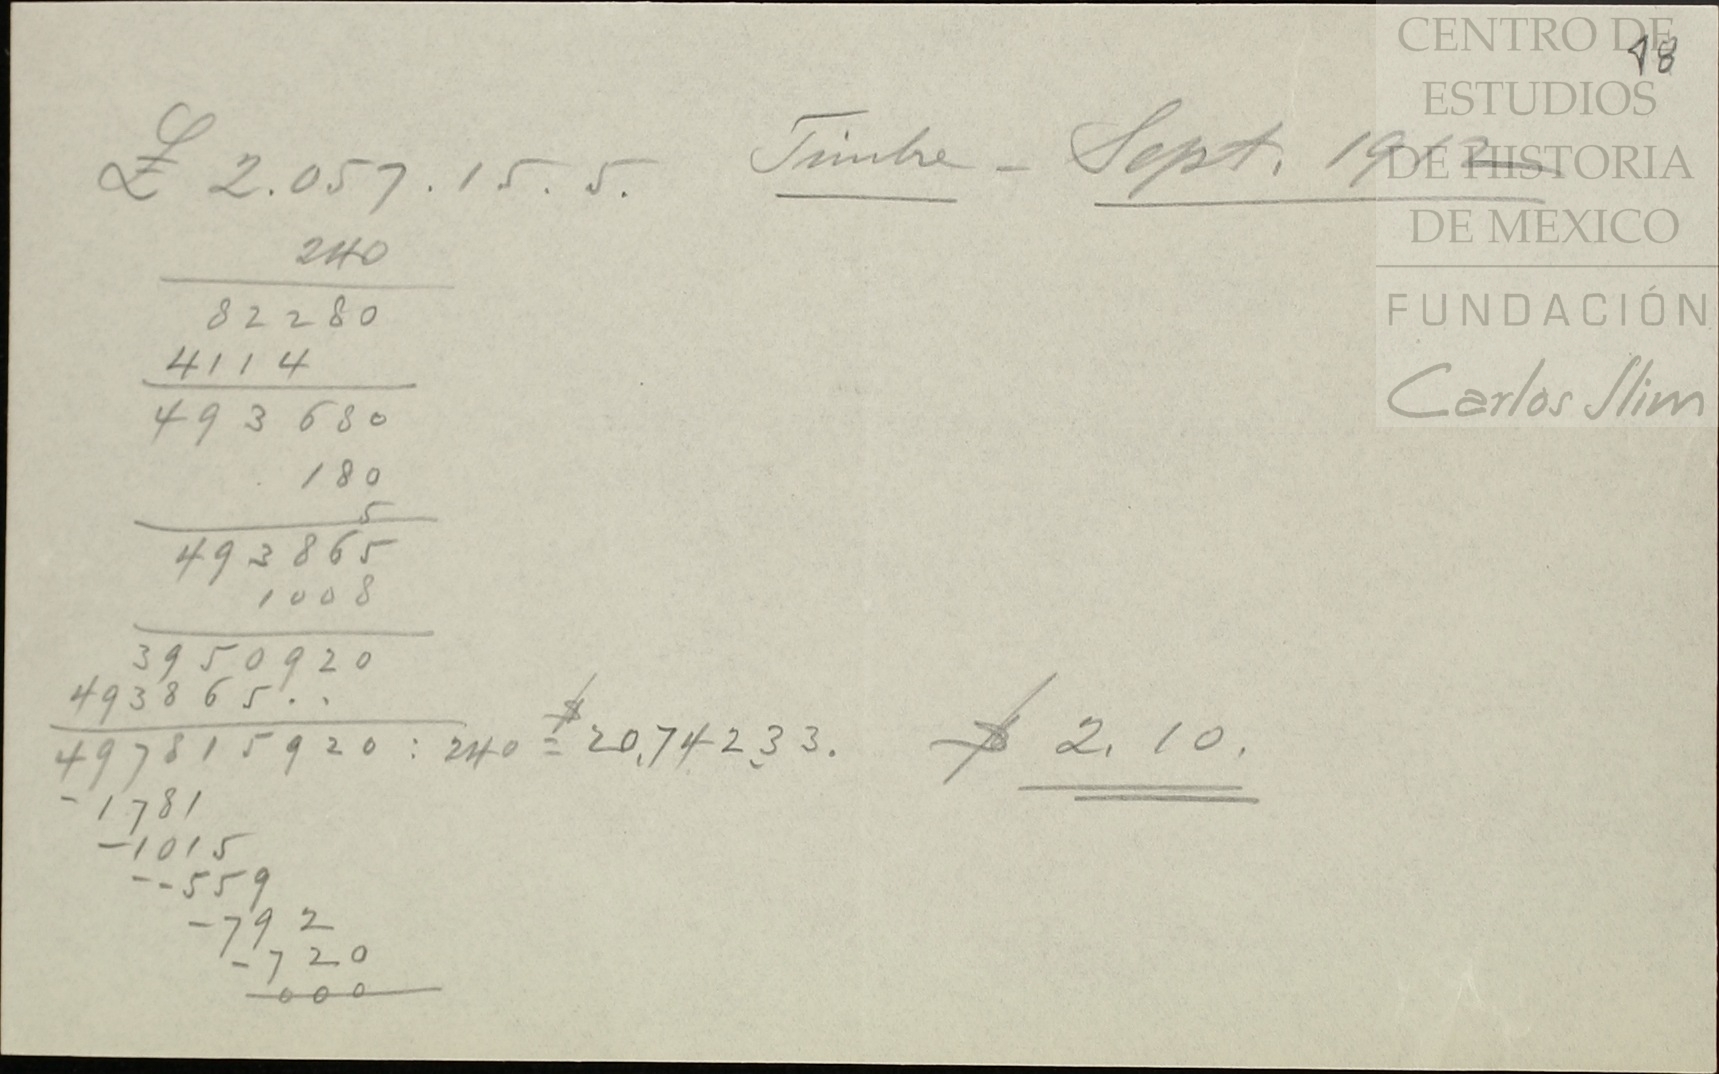 18
£ 2.057.15.5. Timbre - Sept. 1912
240
82280
4114
493680
180
5
493865
1008
3950920
493865..
497815920 : 240 = $ 20,74233. $ 2.10.
-1781
-1015
--559
-792
-720
000
CENTRO DE
ESTUDIOS
DE HISTORIA
DE MEXICO
FUNDACIÓN
Carlos Slim